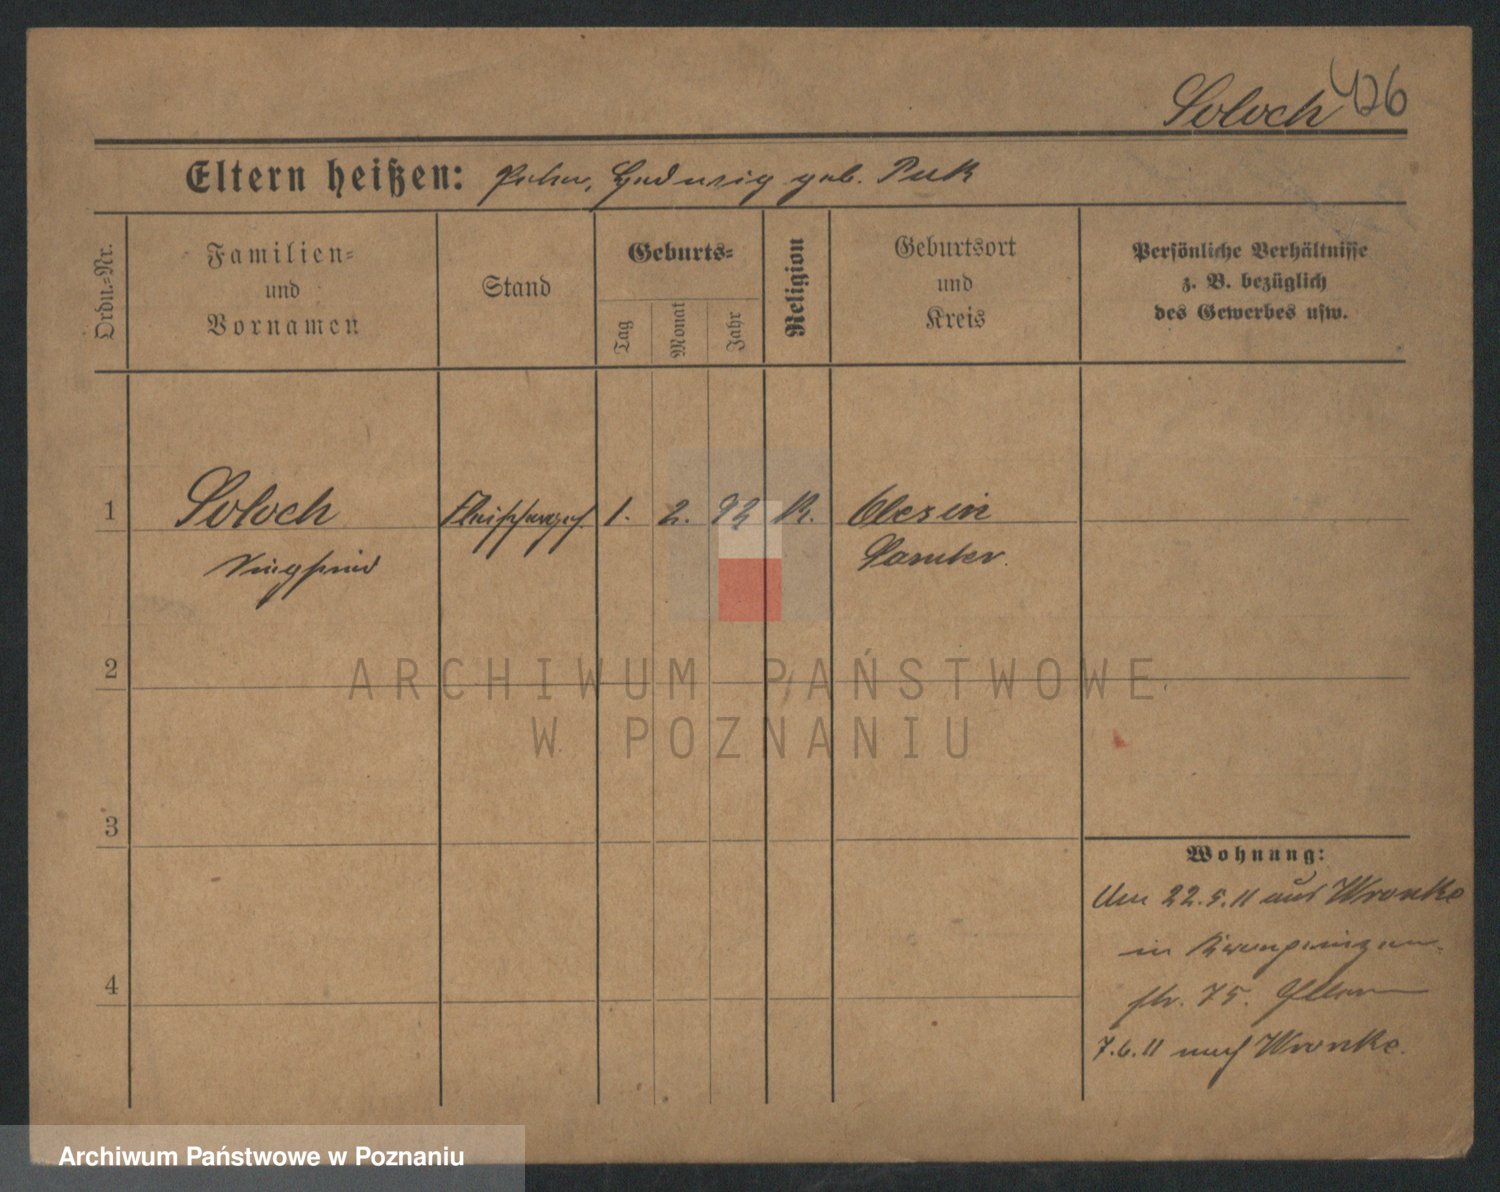 Soloch 426
Eltern heißen: Peter, Hedwig geb. Ptak
Ordn.-Nr.
Familien-
und
Vornamen
Stand
Geburts-
Tag
Monat
Jahr
Religion
Geburtsort
und
Kreis
Persönliche Verhältnisse
z. B. bezüglich
des Gewerbes usw.
1 Soloch Fleischerges. 1. 2. 92 K. Obersin
Siegfried Samter.
2
3
4
Wohnung:
Am 22.5.11 aus Wronke
in
str. 75.
7.6.11 nach Wronke.
ARCHIWUM PAŃSTWOWE
W POZNANIU
Archiwum Państwowe w Poznaniu